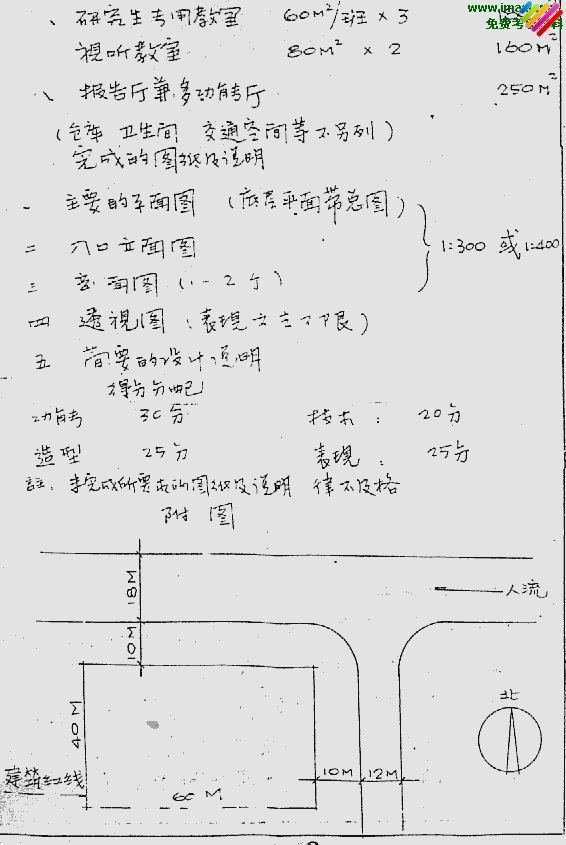 www.ima
免费考 科
、研究生专用教室 60M²/班 × 3 18
視听教室 80M² × 2 160M²
、报告厅兼多功能厅 250M²
(仓库 卫生间 交通空间等不另列)
完成的图纸及说明
一 主要的平面图 (底层平面带总图)
二 入口立面图 1:300 或 1:400
三 剖面图 (1-2个)
四 透視图 (表現方式不限)
五 简要的设计说明
得分分配
功能 30分 技术: 20分
造型 25分 表現: 25分
註. 未完成所要求的图纸及说明 一律不及格
附 图
18M
人流
10M
北
40M
10M 12M
建筑红线
60 M